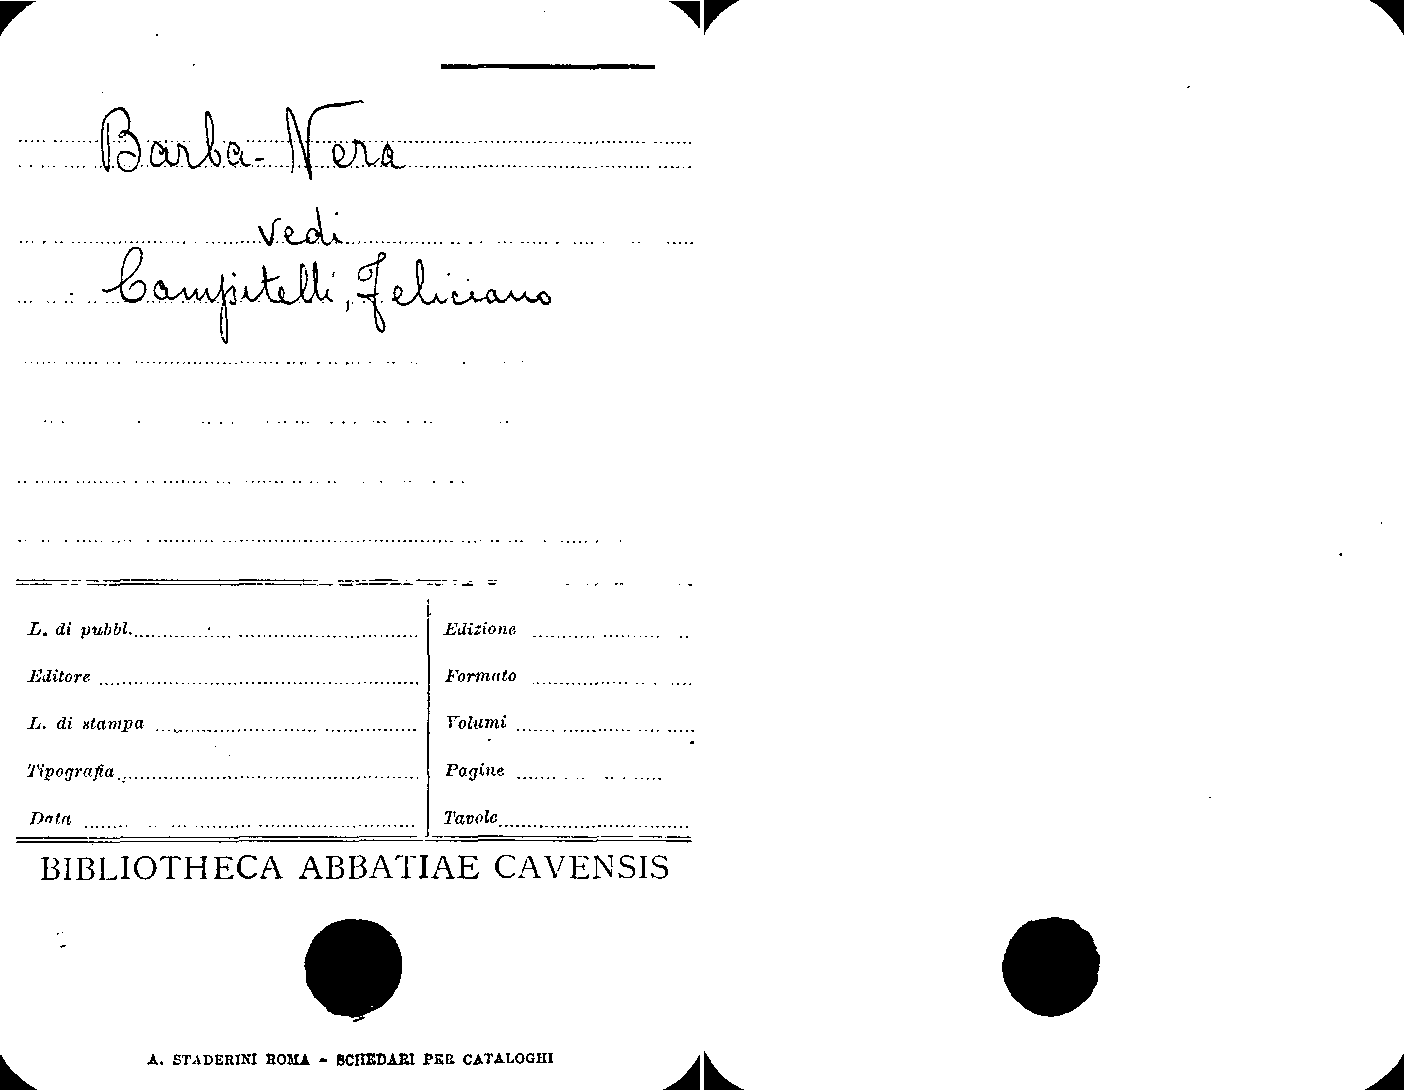 Barba-Nera
vedi
Campitelli, Feliciano
L. di pubbl.
Edizione
Editore
Formato
L. di stampa
Volumi
Tipografia
Pagine
Data
Tavole
BIBLIOTHECA ABBATIAE CAVENSIS
A. STADERINI ROMA - SCHEDARI PER CATALOGHI